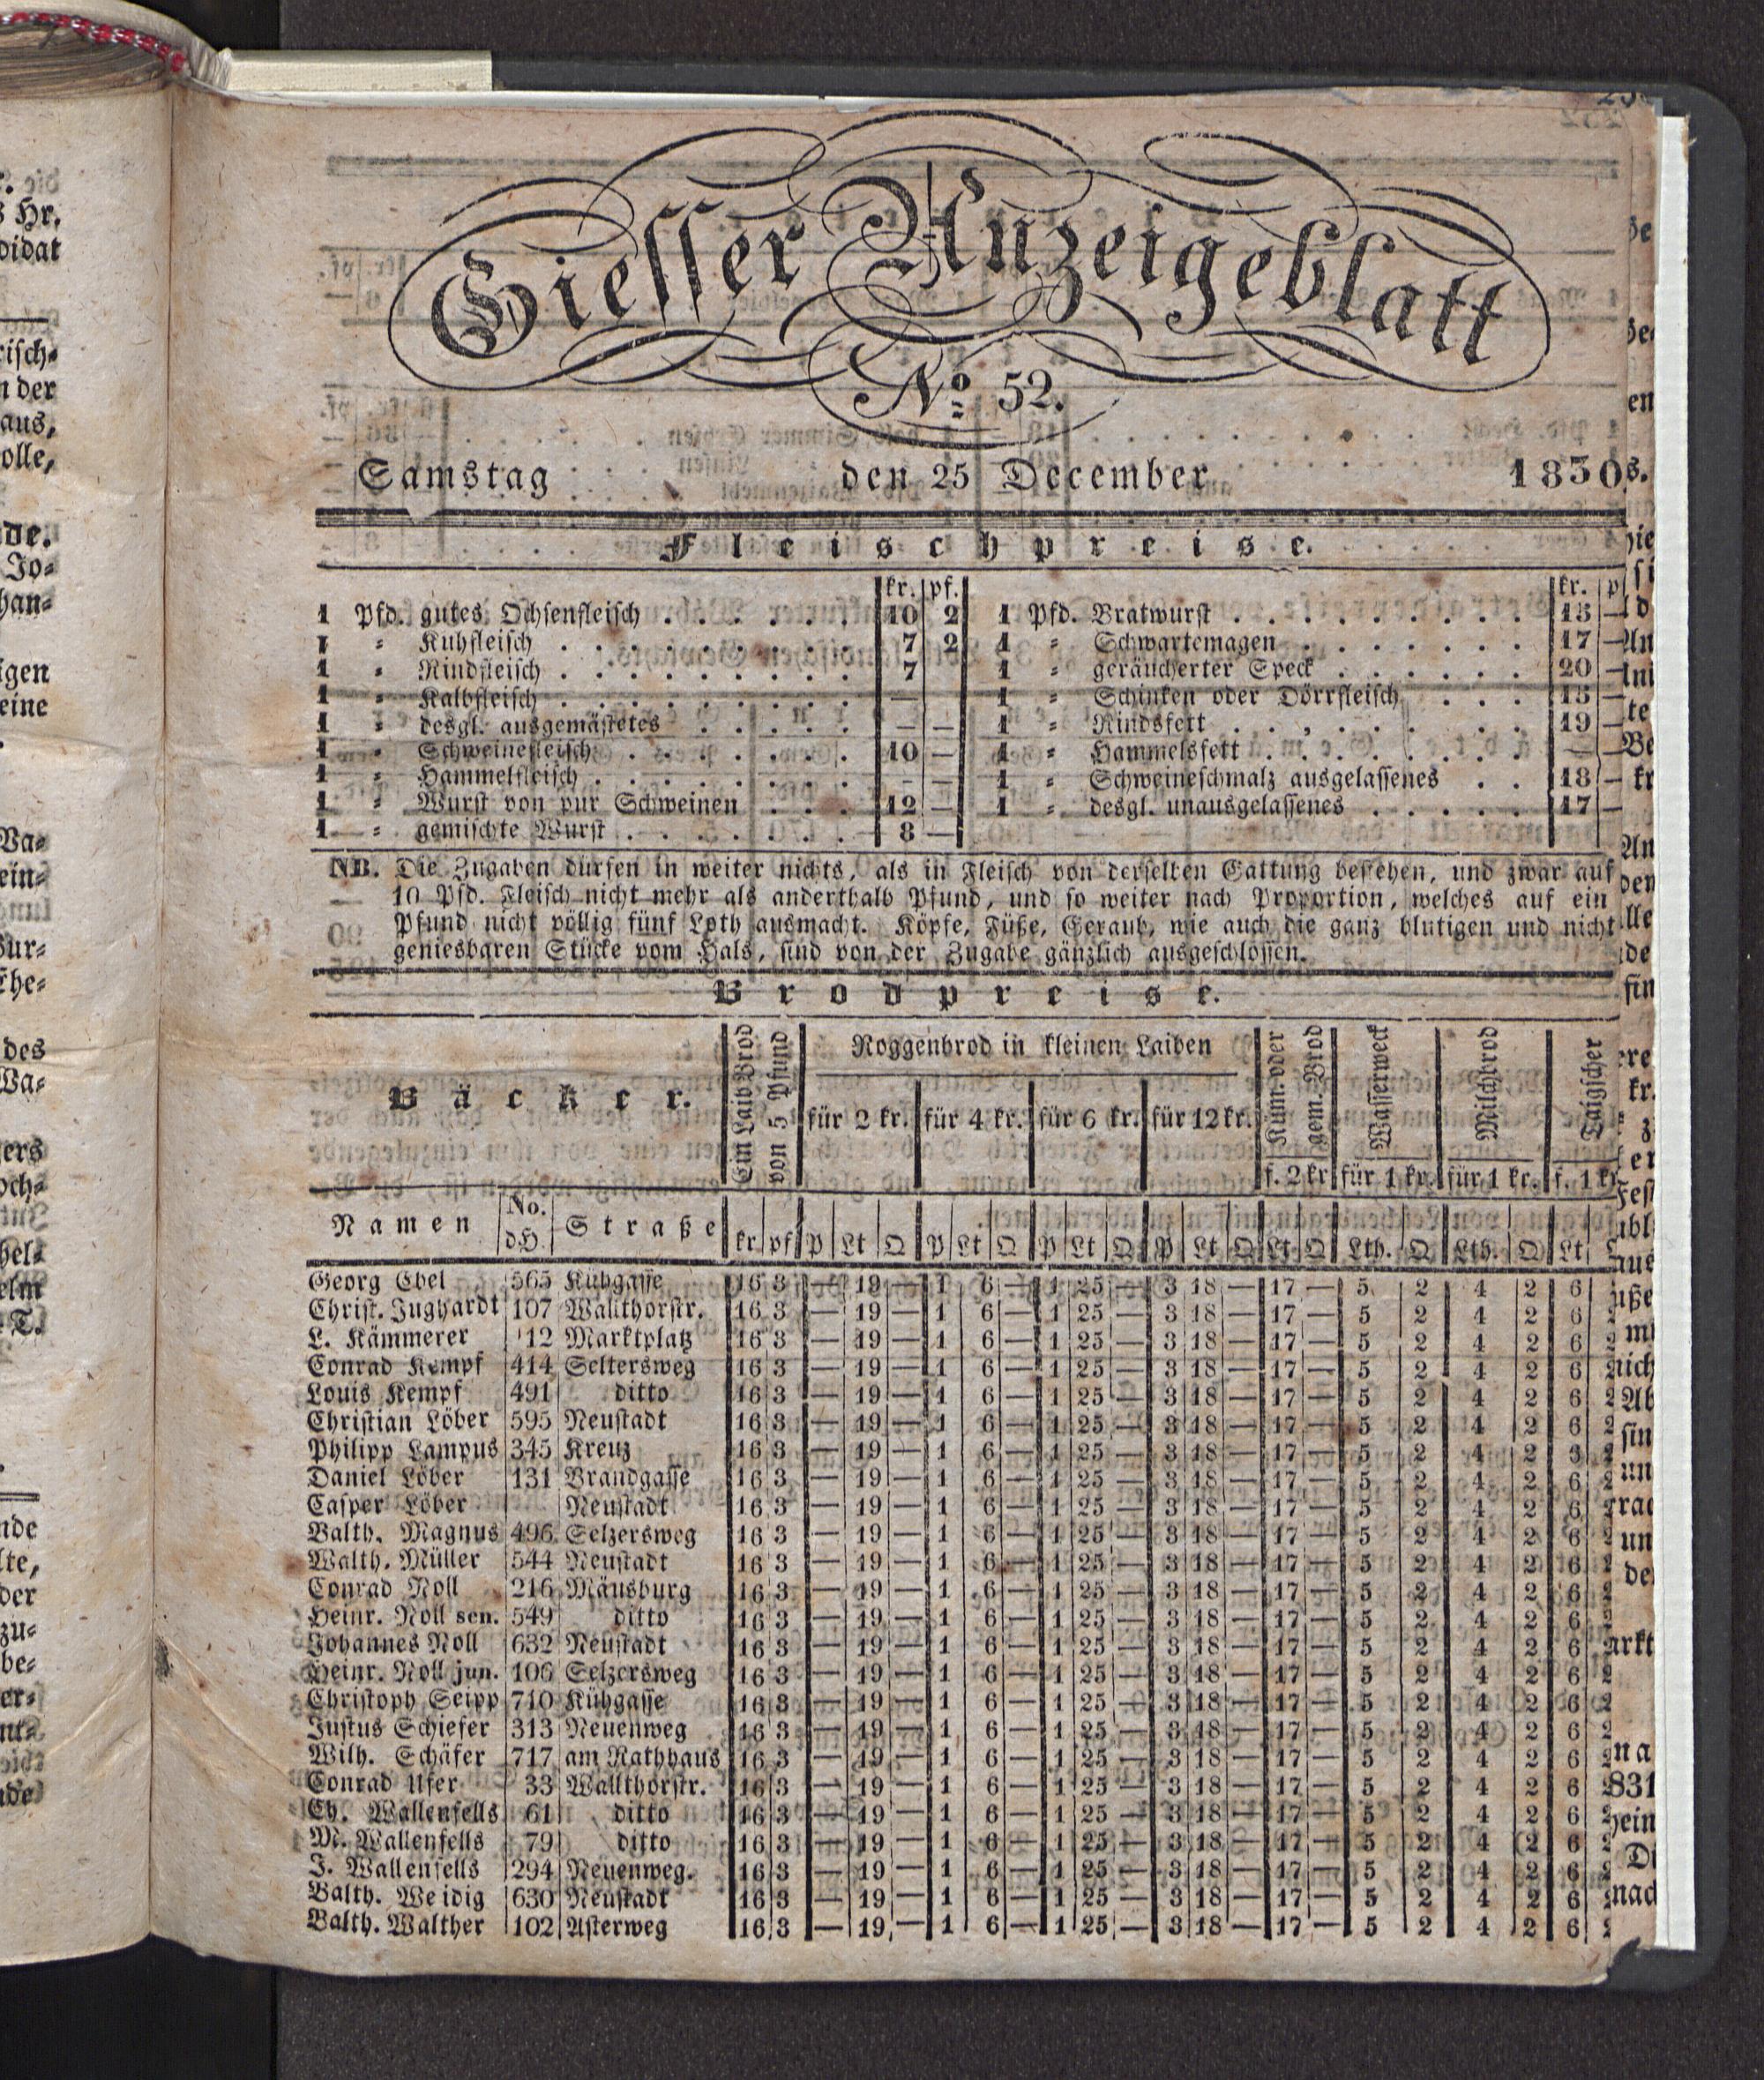 Giesser Anzeigeblatt
No. 52.
Samstag den 25 December 1830.
Fleischpreise.
kr. pf. kr. p
1 Pfd. gutes Ochsenfleisch . . . . . . 10 2 1 Pfd. Bratwurst . . . . . . . . . 15 —
1 = Kuhfleisch . . . . . . . . . 7 2 1 = Schwartemagen . . . . . . . 17 —
1 = Rindfleisch . . . . . . . . . 7 1 = geräucherter Speck . . . . . . 20 —
1 = Kalbfleisch . . . . . . . . . — 1 = Schinken oder Dörrfleisch . . . 15 —
1 = desgl. ausgemästetes . . . . . — — 1 = Rindsfett . . . . . . . . . 19 —
1 = Schweinefleisch . . . . . . . 10 — 1 = Hammelsfett . . . . . . . . — —
1 = Hammelfleisch . . . . . . . . — — 1 = Schweineschmalz ausgelassenes . . 18 —
1 = Wurst von pur Schweinen . . . 12 — 1 = desgl. unausgelassenes . . . . . 17 —
1 = gemischte Wurst . . . . . . . 8 —
NB. Die Zugaben dürfen in weiter nichts, als in Fleisch von derselben Gattung bestehen, und zwar auf
10 Pfd. Fleisch nicht mehr als anderthalb Pfund, und so weiter nach Proportion, welches auf ein
Pfund nicht völlig fünf Loth ausmacht. Köpfe, Füße, Geraub, wie auch die ganz blutigen und nicht
geniesbaren Stücke vom Hals, sind von der Zugabe gänzlich ausgeschlossen.
Brodpreise.
Bäcker.
Ein Laib Brod
von 5 Pfund
Roggenbrod in kleinen Laiben
für 2 kr. für 4 kr. für 6 kr. für 12 kr.
Küm. oder
gem. Brod
f. 2 kr
Wasserweck
für 1 kr.
Milchbrod
für 1 kr.
Taigscher
f. 1 kr
Namen No. d.H. Straße kr pf P Lt Q P Lt Q P Lt Q P Lt Q Lt Q Lth. Q Lth. Q Lt
Georg Ebel 565 Kühgasse 16 3 — 19 — 1 6 — 1 25 — 3 18 — 17 — 5 2 4 2 6
Christ. Jughardt 107 Wallthorstr. 16 3 — 19 — 1 6 — 1 25 — 3 18 — 17 — 5 2 4 2 6 2
L. Kämmerer 12 Marktplatz 16 3 — 19 — 1 6 — 1 25 — 3 18 — 17 — 5 2 4 2 6 2
Conrad Kempf 414 Seltersweg 16 3 — 19 — 1 6 — 1 25 — 3 18 — 17 — 5 2 4 2 6 2
Louis Kempf 491 ditto 16 3 — 19 — 1 6 — 1 25 — 3 18 — 17 — 5 2 4 2 6 2
Christian Löber 595 Neustadt 16 3 — 19 — 1 6 — 1 25 — 3 18 — 17 — 5 2 4 2 6 2
Philipp Lampus 345 Kreuz 16 3 — 19 — 1 6 — 1 25 — 3 18 — 17 — 5 2 4 2 3 2
Daniel Löber 131 Brandgasse 16 3 — 19 — 1 6 — 1 25 — 3 18 — 17 — 5 2 4 2 6 2
Casper Löber Neustadt 16 3 — 19 — 1 6 — 1 25 — 3 18 — 17 — 5 2 4 2 6 2
Balth. Magnus 496 Selzersweg 16 3 — 19 — 1 6 — 1 25 — 3 18 — 17 — 5 2 4 2 6 2
Walth. Müller 544 Neustadt 16 3 — 19 — 1 6 — 1 25 — 3 18 — 17 — 5 2 4 2 6 2
Conrad Noll 216 Mäusburg 16 3 — 19 — 1 6 — 1 25 — 3 18 — 17 — 5 2 4 2 6 2
Heinr. Noll sen. 549 ditto 16 3 — 19 — 1 6 — 1 25 — 3 18 — 17 — 5 2 4 2 6 2
Johannes Noll 632 Neustadt 16 3 — 19 — 1 6 — 1 25 — 3 18 — 17 — 5 2 4 2 6 2
Heinr. Noll jun. 106 Selzersweg 16 3 — 19 — 1 6 — 1 25 — 3 18 — 17 — 5 2 4 2 6 2
Christoph Seipp 710 Kühgasse 16 3 — 19 — 1 6 — 1 25 — 3 18 — 17 — 5 2 4 2 6 2
Justus Schiefer 313 Neuenweg 16 3 — 19 — 1 6 — 1 25 — 3 18 — 17 — 5 2 4 2 6 2
Wilh. Schäfer 717 am Rathhaus 16 3 — 19 — 1 6 — 1 25 — 3 18 — 17 — 5 2 4 2 6 2
Conrad Ufer 33 Wallthorstr. 16 3 — 19 — 1 6 — 1 25 — 3 18 — 17 — 5 2 4 2 6 2
Ch. Wallenfells 61 ditto 16 3 — 19 — 1 6 — 1 25 — 3 18 — 17 — 5 2 4 2 6 2
M. Wallenfells 79 ditto 16 3 — 19 — 1 6 — 1 25 — 3 18 — 17 — 5 2 4 2 6 2
J. Wallenfells 294 Neuenweg. 16 3 — 19 — 1 6 — 1 25 — 3 18 — 17 — 5 2 4 2 6 2
Balth. Weidig 630 Neustadt 16 3 — 19 — 1 6 — 1 25 — 3 18 — 17 — 5 2 4 2 6 2
Balth. Walther 102 Asterweg 16 3 — 19 — 1 6 — 1 25 — 3 18 — 17 — 5 2 4 2 6 2